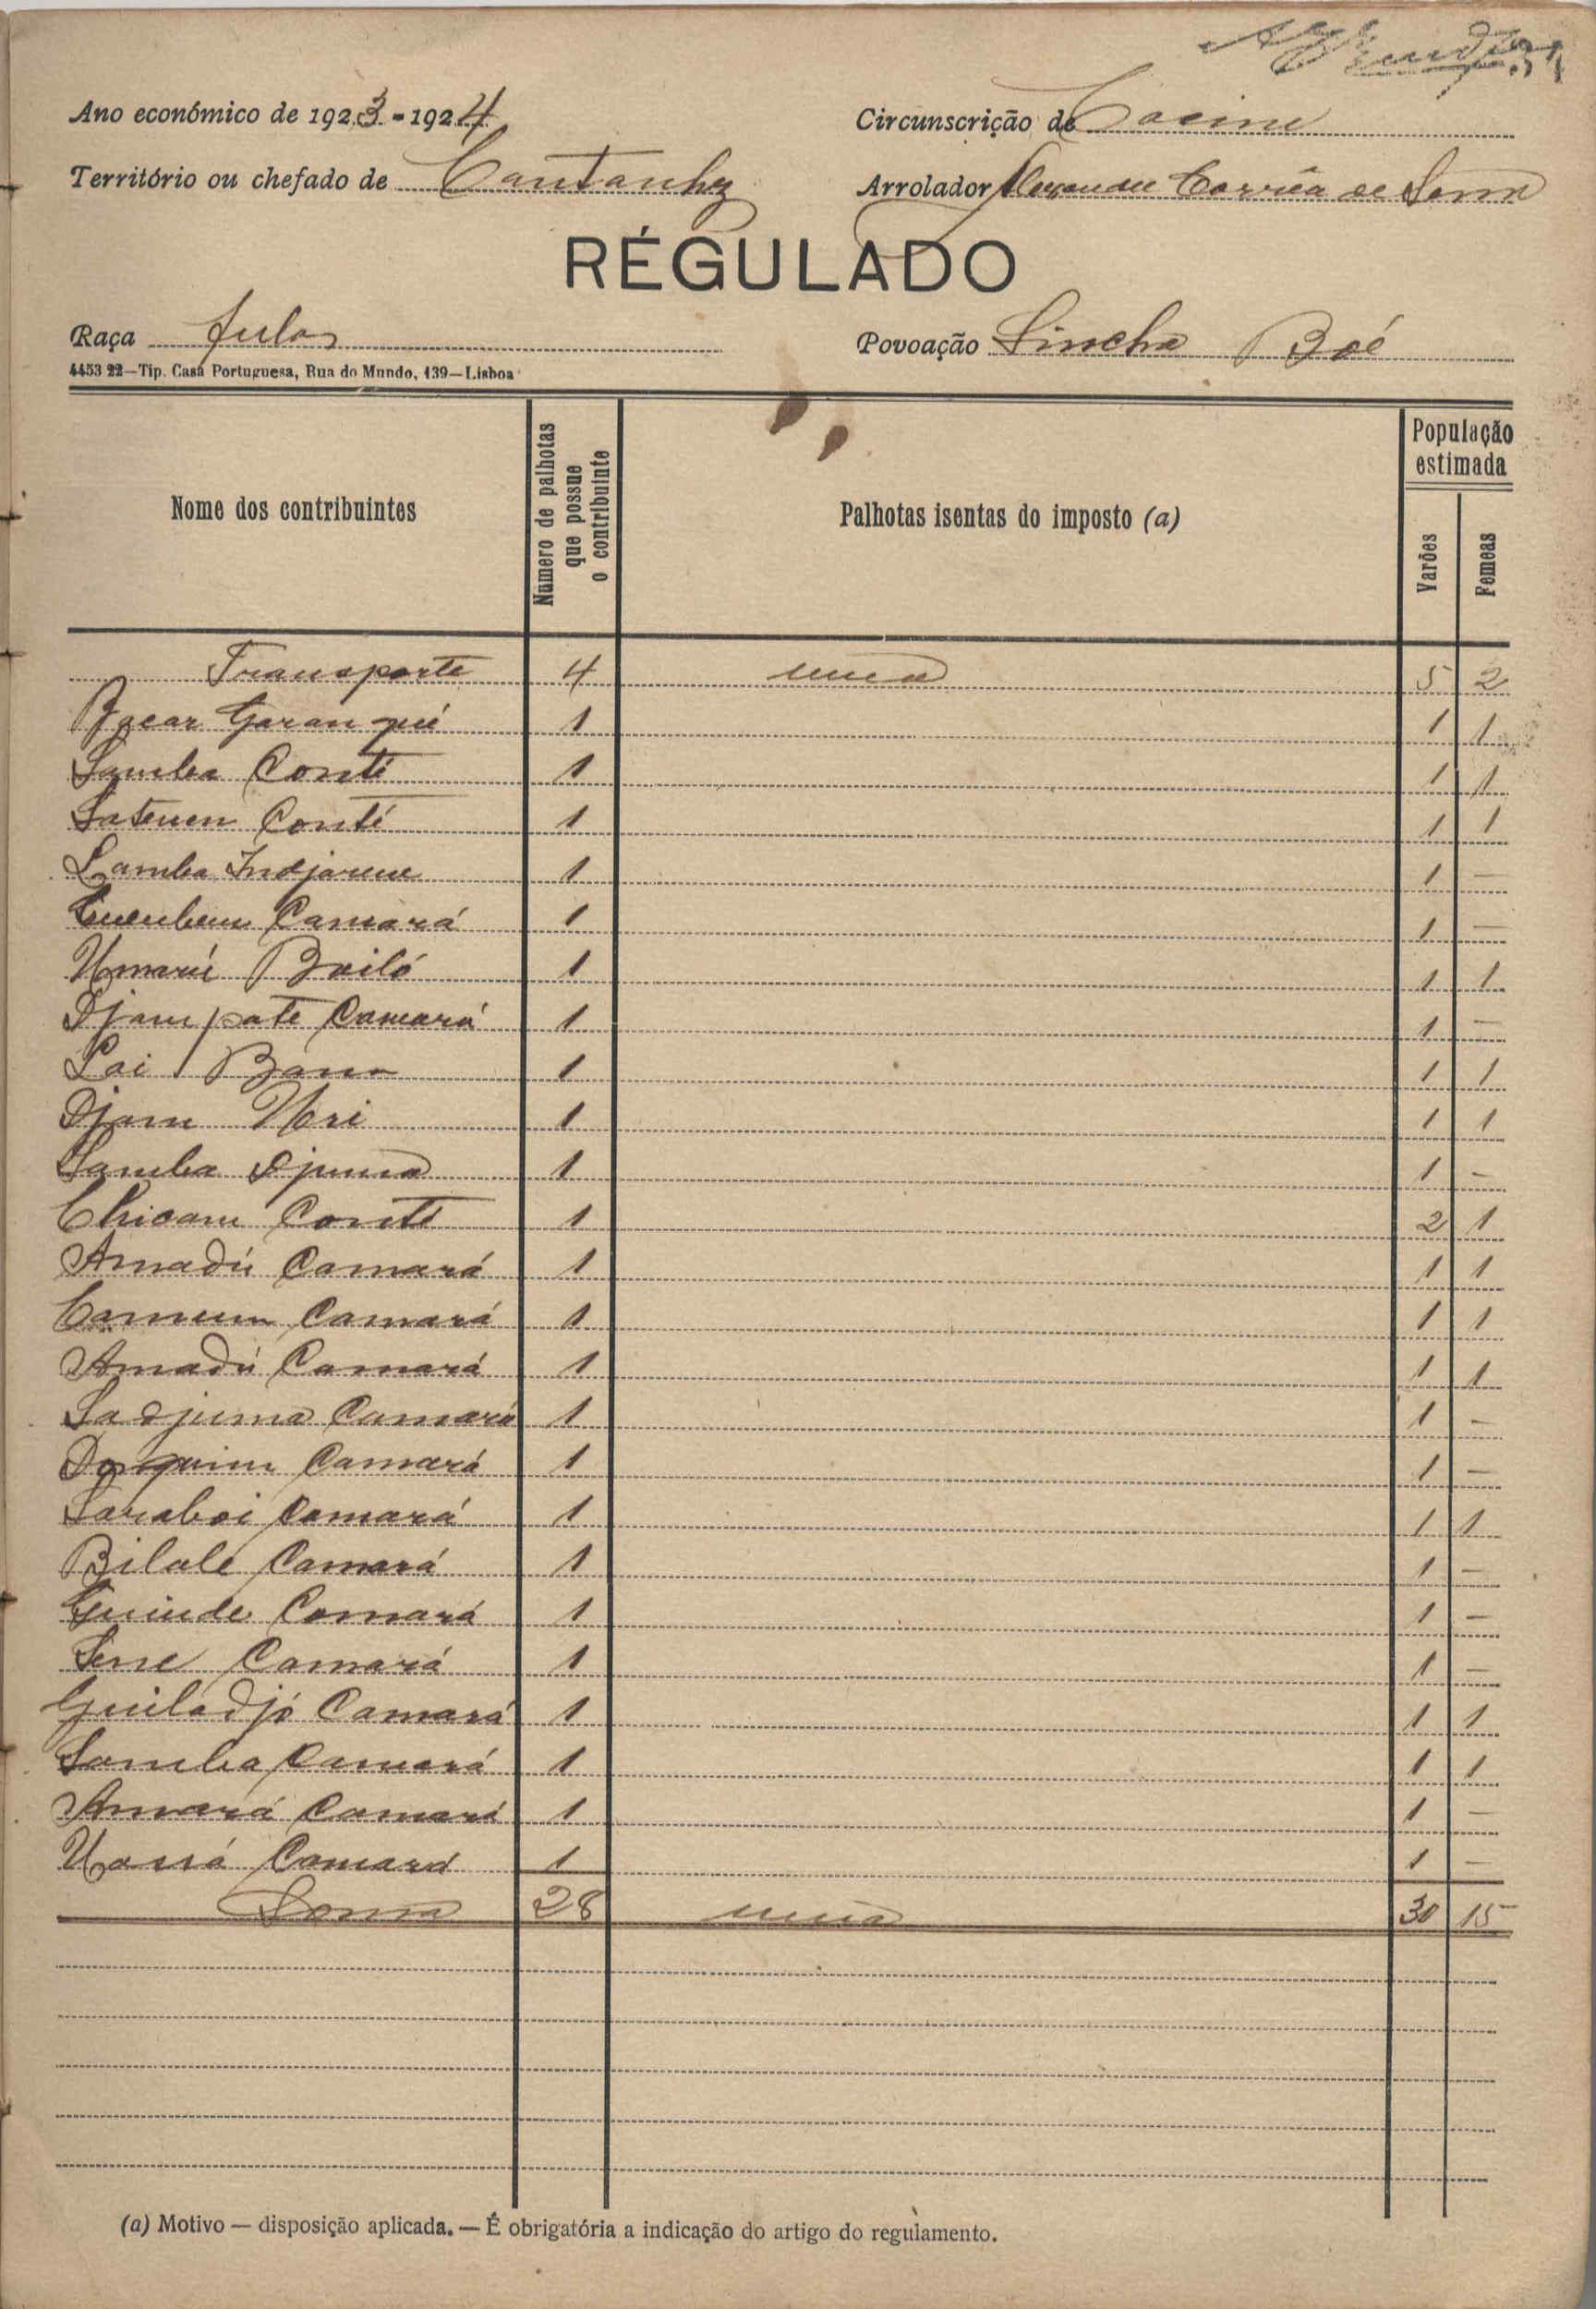 Ano económico de 1923-1924
Circunscrição de Cacine
Território ou chefado de Cantanhez
Arrolador Alexandre Corrêa de
RÉGULADO
Raça fulas
Povoação Sincha Boé
4453 22—Tip. Casa Portuguesa, Rua do Mundo, 139—Lisboa
Nome dos contribuintes
Número de palhotas que possue o contribuinte
Palhotas isentas do imposto (a)
População estimada
Varões
Femeas
Transporte 4 5 2
1 1 1
Samba Conté 1 1 1
Conté 1 1 1
Samba 1 1 —
Camará 1 1 —
Umarú Bailó 1 1 1
Djam pate Camará 1 1 —
1 1 1
Djam Uri 1 1 1
Samba Djuma 1 1 —
Conté 1 2 1
Amadú Camará 1 1 1
Camará 1 1 1
Amadú Camará 1 1 1
Sadjuma Camará 1 1 —
Camará 1 1 —
Saraboi Camará 1 1 1
Bilale Camará 1 1 —
Camará 1 1 —
Camará 1 1 —
Guiladjó Camará 1 1 1
Samba Camará 1 1 1
Amará Camará 1 1 —
Camará 1 1 —
Soma 28 30 15
(a) Motivo — disposição aplicada. — É obrigatória a indicação do artigo do regulamento.